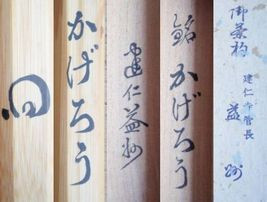 御茶杓
建仁寺管長
益州
銘 かげろう
建仁益州
かげろう